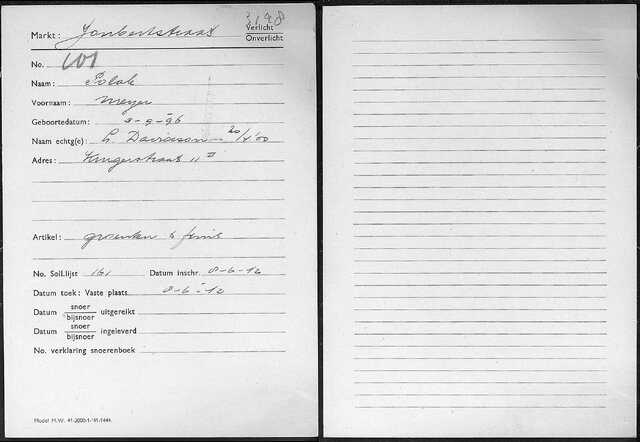 3128
Markt: Joubertstraat
Verlicht
Onverlicht
No. 101
Naam: Polak
Voornaam: Meyer
Geboortedatum: 3-9-96
Naam echtg(e): L. Davidson 20/4'00
Adres: Krugerstraat 11 II
Artikel: groenten & fruit
No. Soll.lijst 161 Datum inschr. 8-6-16
Datum toek: Vaste plaats 8-6-16
Datum snoer/bijsnoer uitgereikt
Datum snoer/bijsnoer ingeleverd
No. verklaring snoerenboek
Model M.W. 41-2000-1-'41-1444.